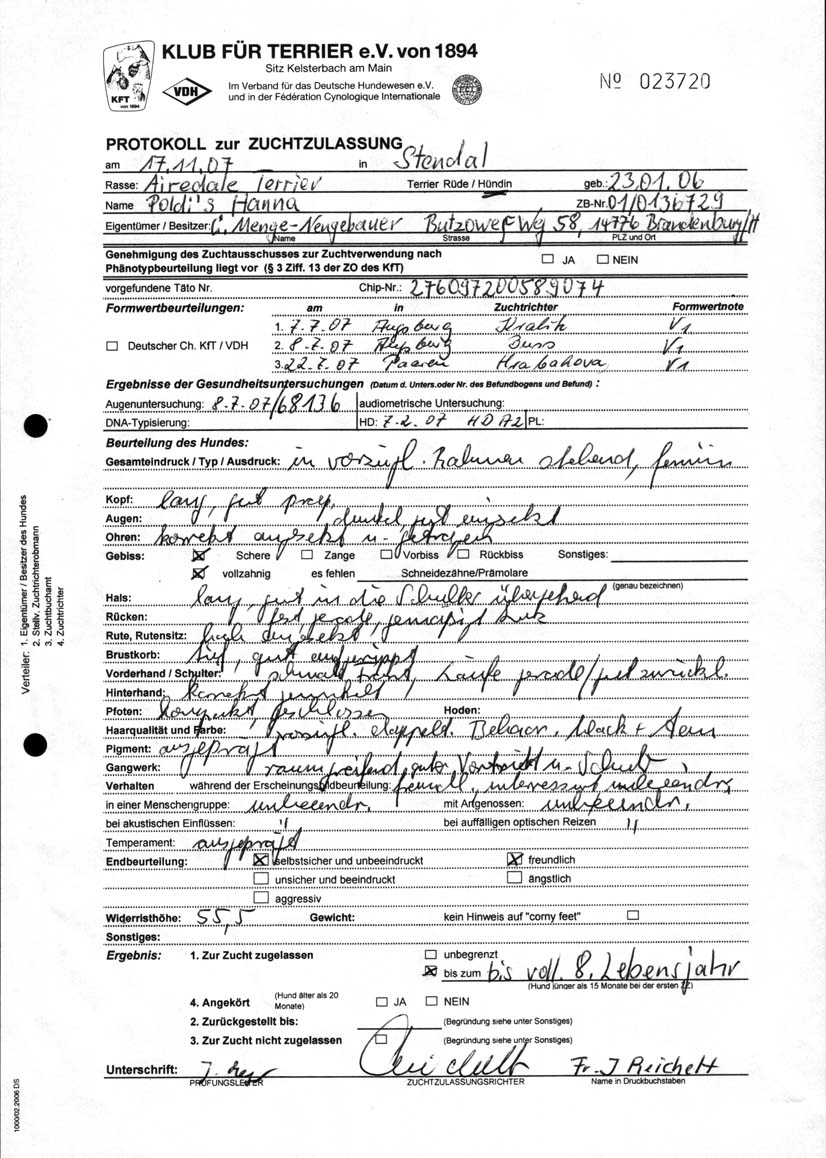 KLUB FÜR TERRIER e.V. von 1894
Sitz Kelsterbach am Main
KFT
von 1894
VDH
Im Verband für das Deutsche Hundewesen e.V.
und in der Fédération Cynologique Internationale
FCI
Nº 023720
PROTOKOLL zur ZUCHTZULASSUNG
am 17.11.07 in Stendal
Rasse: Airedale Terrier Terrier Rüde / Hündin geb.: 23.01.06
Name Poldi's Hanna ZB-Nr. 01/0136729
Eigentümer / Besitzer: C. Menge-Neugebauer Butzower Weg 58, 14776 Brandenburg/H
Name Strasse PLZ und Ort
Genehmigung des Zuchtausschusses zur Zuchtverwendung nach
Phänotypbeurteilung liegt vor (§ 3 Ziff. 13 der ZO des KfT) JA NEIN
vorgefundene Täto Nr. Chip-Nr.: 276097200589074
Formwertbeurteilungen: am in Zuchtrichter Formwertnote
1. 7.7.07 Augsburg Kralik V1
Deutscher Ch. KfT / VDH 2. 8.7.07 Augsburg Buss V1
3. 22.7.07 Paaren Hrabakova V1
Ergebnisse der Gesundheitsuntersuchungen (Datum d. Unters.oder Nr. des Befundbogens und Befund) :
Augenuntersuchung: 8.7.07/68136 audiometrische Untersuchung:
DNA-Typisierung: HD: 7.2.07 HD A2 PL:
Beurteilung des Hundes:
Gesamteindruck / Typ / Ausdruck: in vorzügl. Rahmen stehend, feminin
Kopf: lang, gut prop.
Augen: dunkel, gut eingesetzt
Ohren: korrekt angesetzt u. getragen
Gebiss: Schere Zange Vorbiss Rückbiss Sonstiges:
vollzahnig es fehlen Schneidezähne/Prämolare
(genau bezeichnen)
Hals: lang, gut in die Schulter übergehend
Rücken: fest, gerade,
Rute, Rutensitz: hoch angesetzt
Brustkorb: tief, gut aufgerippt
Vorderhand / Schulter: schmale Front, Läufe gerade/gut zurückl.
Hinterhand: korrekt gewinkelt
Pfoten: kompakt, geschlossen Hoden:
Haarqualität und Farbe: vorzügl. doppeld. Behaar. black + tan
Pigment: ausgeprägt
Gangwerk: raumgreifend, guter Vortritt u. Schub
Verhalten während der Erscheinungsbildbeurteilung: freundl., interessiert unbeeindr.
in einer Menschengruppe: unbeeindr. mit Artgenossen: unbeeindr.
bei akustischen Einflüssen: " bei auffälligen optischen Reizen "
Temperament: ausgeprägt
Endbeurteilung: selbstsicher und unbeeindruckt freundlich
unsicher und beeindruckt ängstlich
aggressiv
Widerristhöhe: 55,5 Gewicht: kein Hinweis auf "corny feet"
Sonstiges:
Ergebnis: 1. Zur Zucht zugelassen unbegrenzt
bis zum bis voll. 8. Lebensjahr
(Hund jünger als 15 Monate bei der ersten ZZ)
4. Angekört (Hund älter als 20 Monate) JA NEIN
2. Zurückgestellt bis: (Begründung siehe unter Sonstiges)
3. Zur Zucht nicht zugelassen (Begründung siehe unter Sonstiges)
Unterschrift: Fr. J Reichelt
PRÜFUNGSLEITER ZUCHTZULASSUNGSRICHTER Name in Druckbuchstaben
Verteiler: 1. Eigentümer / Besitzer des Hundes
2. Stellv. Zuchtrichterobmann
3. Zuchtbuchamt
4. Zuchtrichter
1000/02.2006 DS